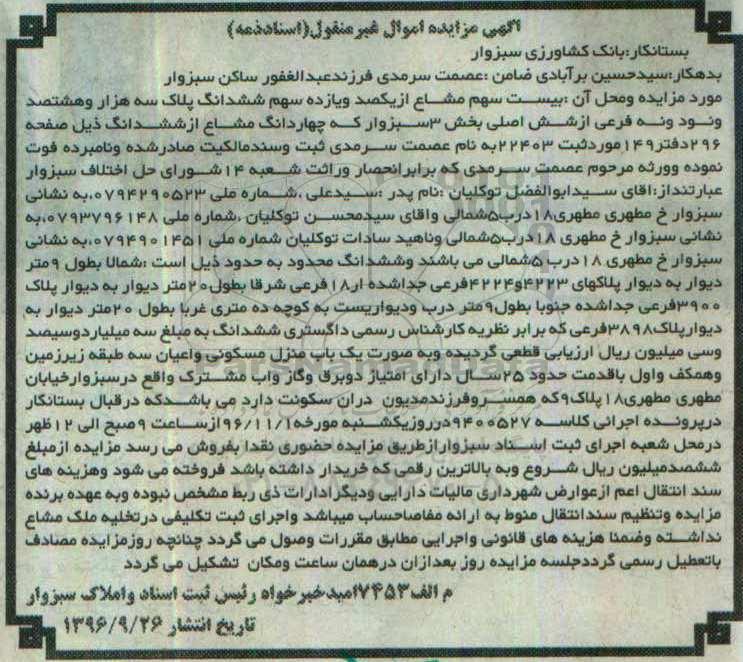 آگهی مزایده اموال غیرمنقول(اسنادذمه)
بستانکار:بانک کشاورزی سبزوار
بدهکار:سیدحسین برآبادی ضامن :عصمت سرمدی فرزندعبدالغفور ساکن سبزوار
مورد مزایده ومحل آن :بیست سهم مشاع ازیکصد ویازده سهم ششدانگ پلاک سه هزار وهشتصد
ونود ونه فرعی ازشش اصلی بخش ۳سبزوار که چهاردانگ مشاع ازششدانگ ذیل صفحه
۲۹۶دفتر۱۴۹موردثبت ۲۲۴۰۳به نام عصمت سرمدی ثبت وسندمالکیت صادرشده ونامبرده فوت
نموده وورثه مرحوم عصمت سرمدی که برابرانحصار وراثت شعبه ۱۴شورای حل اختلاف سبزوار
عبارتنداز:اقای سیدابوالفضل توکلیان ،نام پدر :سیدعلی ،شماره ملی ۰۷۹۴۲۹۰۵۲۳،به نشانی
سبزوار خ مطهری مطهری۱۸درب۵شمالی واقای سیدمحسن توکلیان ،شماره ملی ۰۷۹۳۷۹۶۱۴۸،به
نشانی سبزوار خ مطهری ۱۸درب۵شمالی وناهید سادات توکلیان شماره ملی ۰۷۹۴۹۰۱۴۵۱،به نشانی
سبزوار خ مطهری ۱۸درب۵شمالی می باشند وششدانگ محدود به حدود ذیل است :شمالا بطول ۹متر
دیوار به دیوار پلاکهای ۴۲۲۳و۴۲۲۴فرعی جداشده از۱۸فرعی شرقا بطول۲۰متر دیوار به دیوار پلاک
۳۹۰۰فرعی جداشده جنوبا بطول۹متر درب ودیواریست به کوچه ده متری غربا بطول ۲۰متر دیوار به
دیوارپلاک۳۸۹۸فرعی که برابر نظریه کارشناس رسمی داگستری ششدانگ به مبلغ سه میلیاردوسیصد
وسی میلیون ریال ارزیابی قطعی گردیده وبه صورت یک باب منزل مسکونی واعیان سه طبقه زیرزمین
وهمکف واول باقدمت حدود ۲۵سال دارای امتیاز دوبرق وگاز واب مشترک واقع درسبزوارخیابان
مطهری مطهری۱۸پلاک۹که همسروفرزندمدیون دران سکونت دارد می باشدکه درقبال بستانکار
درپرونده اجرائی کلاسه ۹۴۰۰۵۲۷درروزیکشنبه مورخه۹۶/۱۱/۱ازساعت ۹صبح الی ۱۲ظهر
درمحل شعبه اجرای ثبت اسناد سبزوارازطریق مزایده حضوری نقدا بفروش می رسد مزایده ازمبلغ
ششصدمیلیون ریال شروع وبه بالاترین رقمی که خریدار داشته باشد فروخته می شود وهزینه های
سند انتقال اعم ازعوارض شهرداری مالیات دارایی ودیگرادارات ذی ربط مشخص نبوده وبه عهده برنده
مزایده وتنظیم سندانتقال منوط به ارائه مفاصاحساب میباشد واجرای ثبت تکلیفی درتخلیه ملک مشاع
نداشته وضمنا هزینه های قانونی واجرایی مطابق مقررات وصول می گردد چنانچه روزمزایده مصادف
باتعطیل رسمی گرددجلسه مزایده روز بعدازان درهمان ساعت ومکان تشکیل می گردد
م الف۷۴۵۳امیدخیرخواه رئیس ثبت اسناد واملاک سبزوار
تاریخ انتشار ۱۳۹۶/۹/۲۶